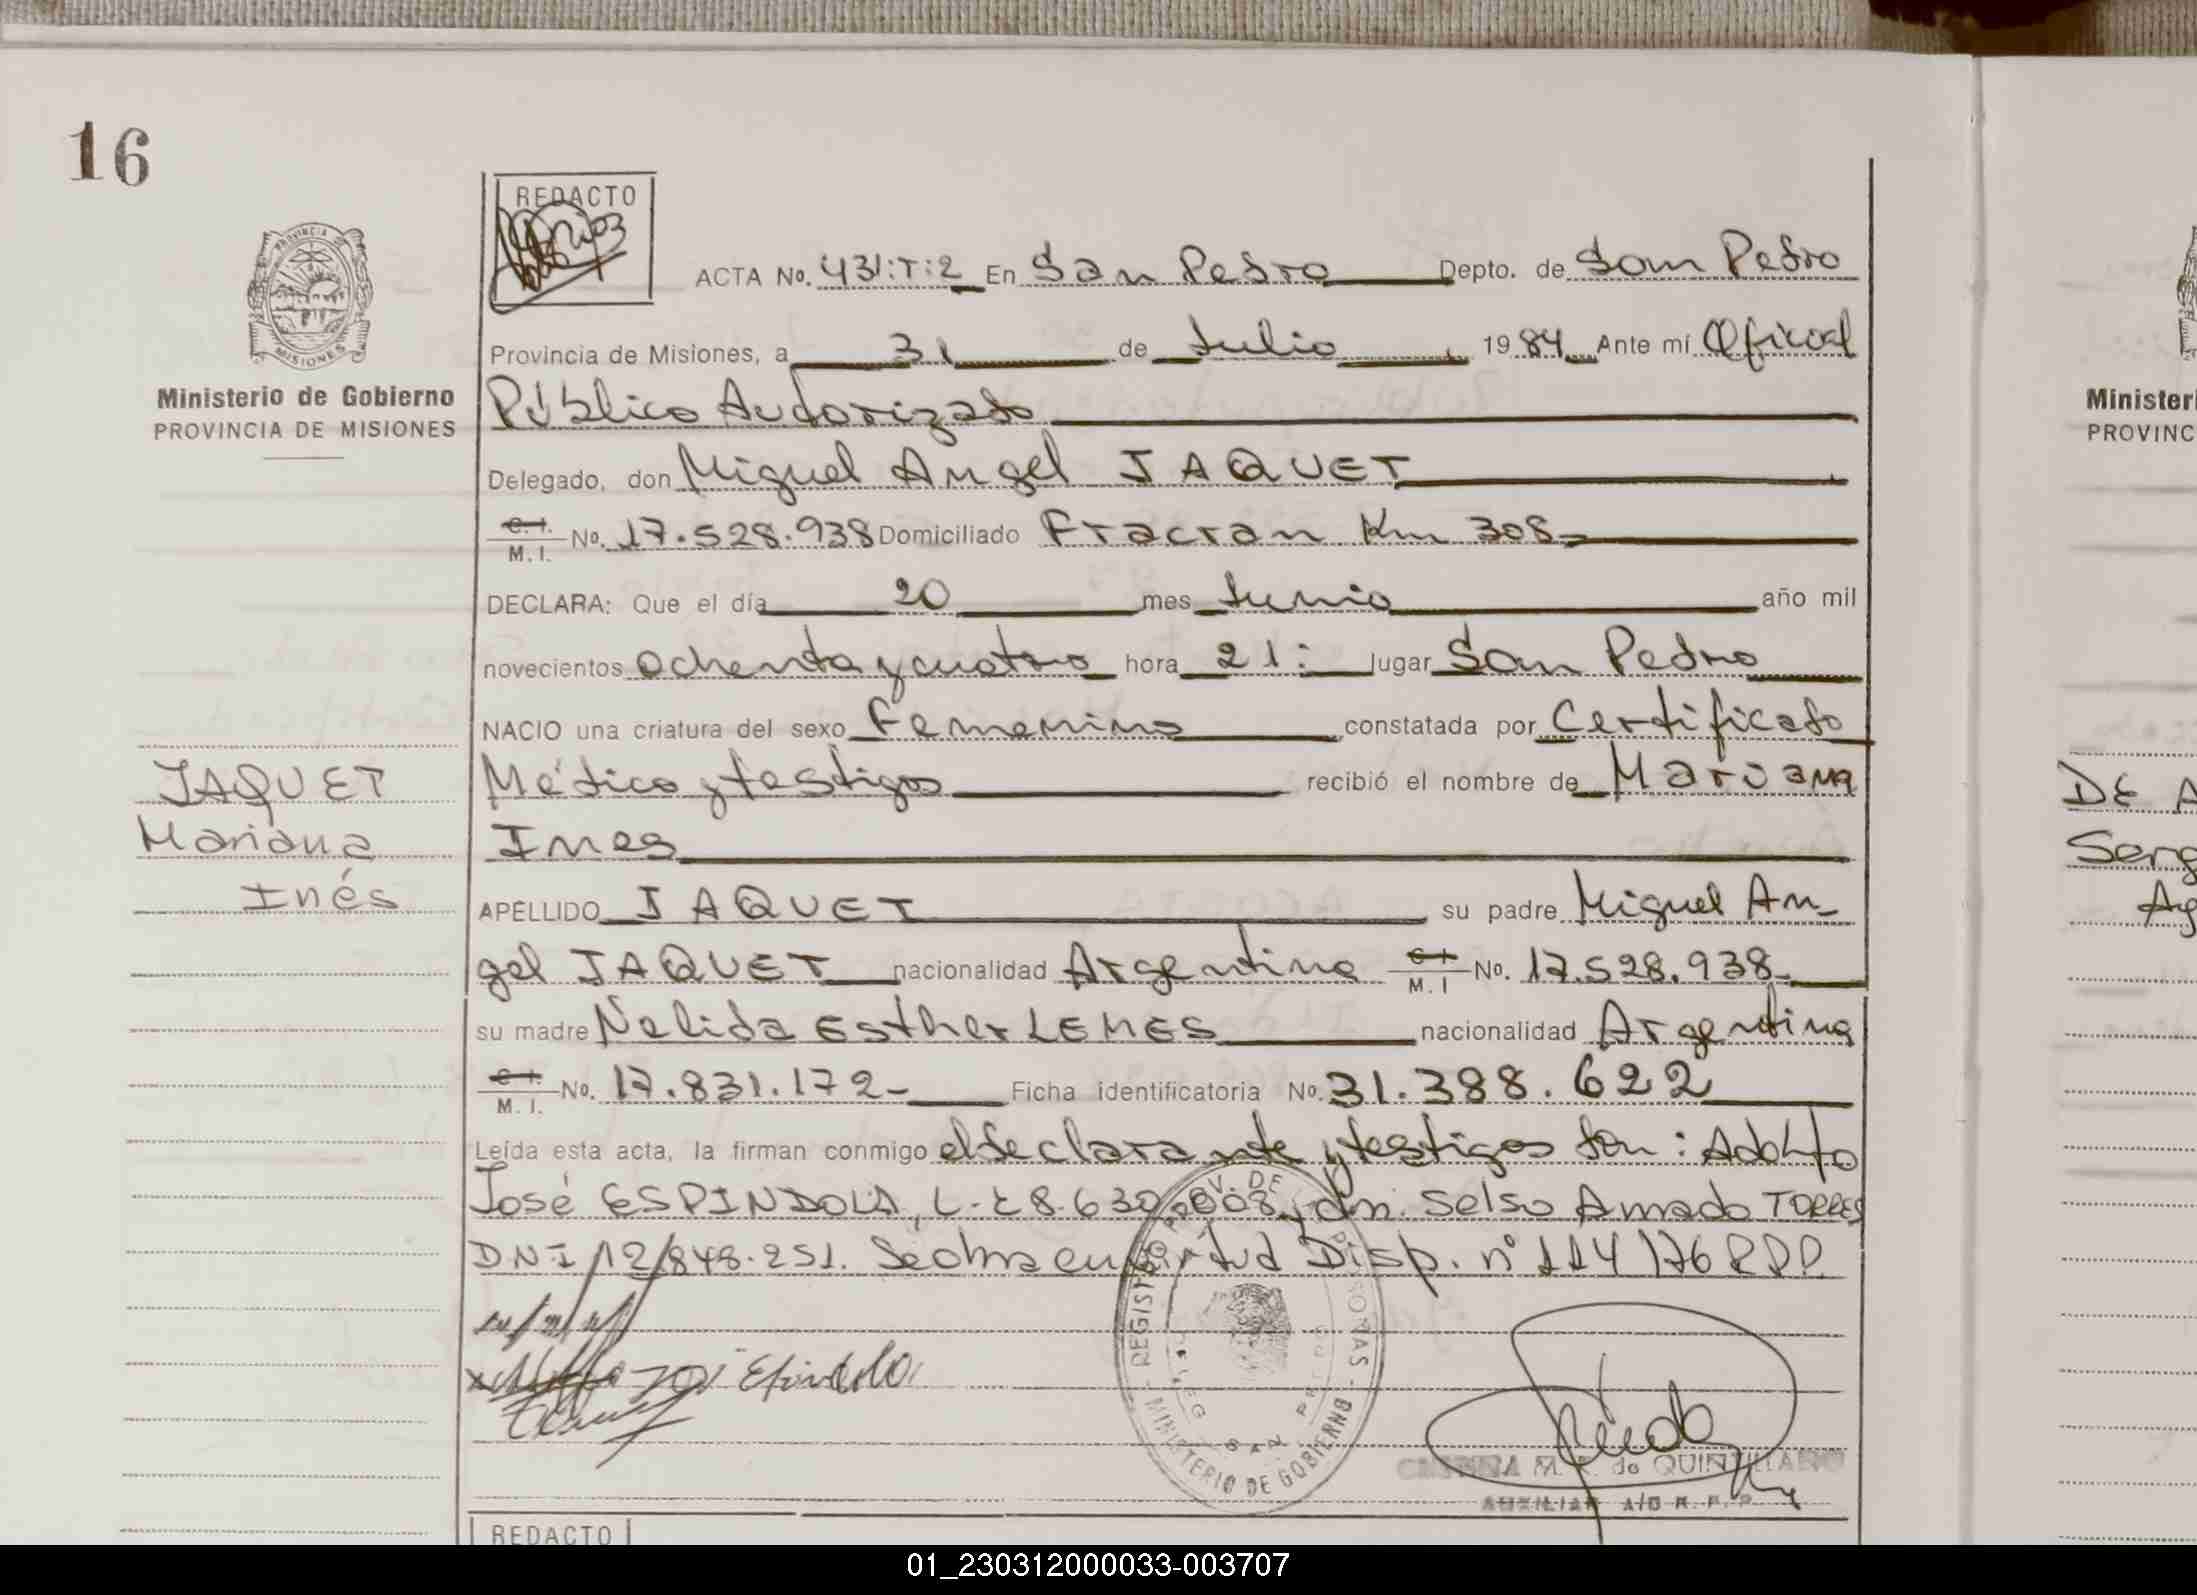 16
REDACTO
ACTA No. 431:T:2 En San Pedro Depto. de San Pedro
PROVINCIA DE
MISIONES
Provincia de Misiones, a 31 de Julio 1984 Ante mí Oficial
Ministerio de Gobierno
PROVINCIA DE MISIONES
Público Autorizado
Delegado, don Miguel Angel JAQUET
C. I. M. I. No. 17.528.938 Domiciliado Fracran Km 308-
DECLARA: Que el día 20 mes Junio año mil
novecientos ochenta y cuatro hora 21: lugar San Pedro
NACIO una criatura del sexo Femenino constatada por Certificado
Médico y testigos recibió el nombre de Mariana
Ines
JAQUET
Mariana
Inés
APELLIDO JAQUET su padre Miguel An-
gel JAQUET nacionalidad Argentina C I M. I No. 17.528.938-
su madre Nelida Esther LEMES nacionalidad Argentina
C. I. M. I. No. 17.831.172- Ficha identificatoria No. 31.388.622
Leída esta acta, la firman conmigo el declarante y testigos Don: Adolfo
José ESPINDOLA, L.E 8.630.008 y dn. Selso Amado TORRES
D.N.I 12/848.251. Se obra en virtud Disp. n° 114/76 RPP.
José Espindola
REGISTRO PROV. DE LAS PERSONAS - MINISTERIO DE GOBIERNO -
DELEG SAN PEDRO
M. R. de QUINTILIANO
AUXILIAR A/C R. P. P.
REDACTO
Minister
PROVINC
DE A
Serg
Ag
01_230312000033-003707